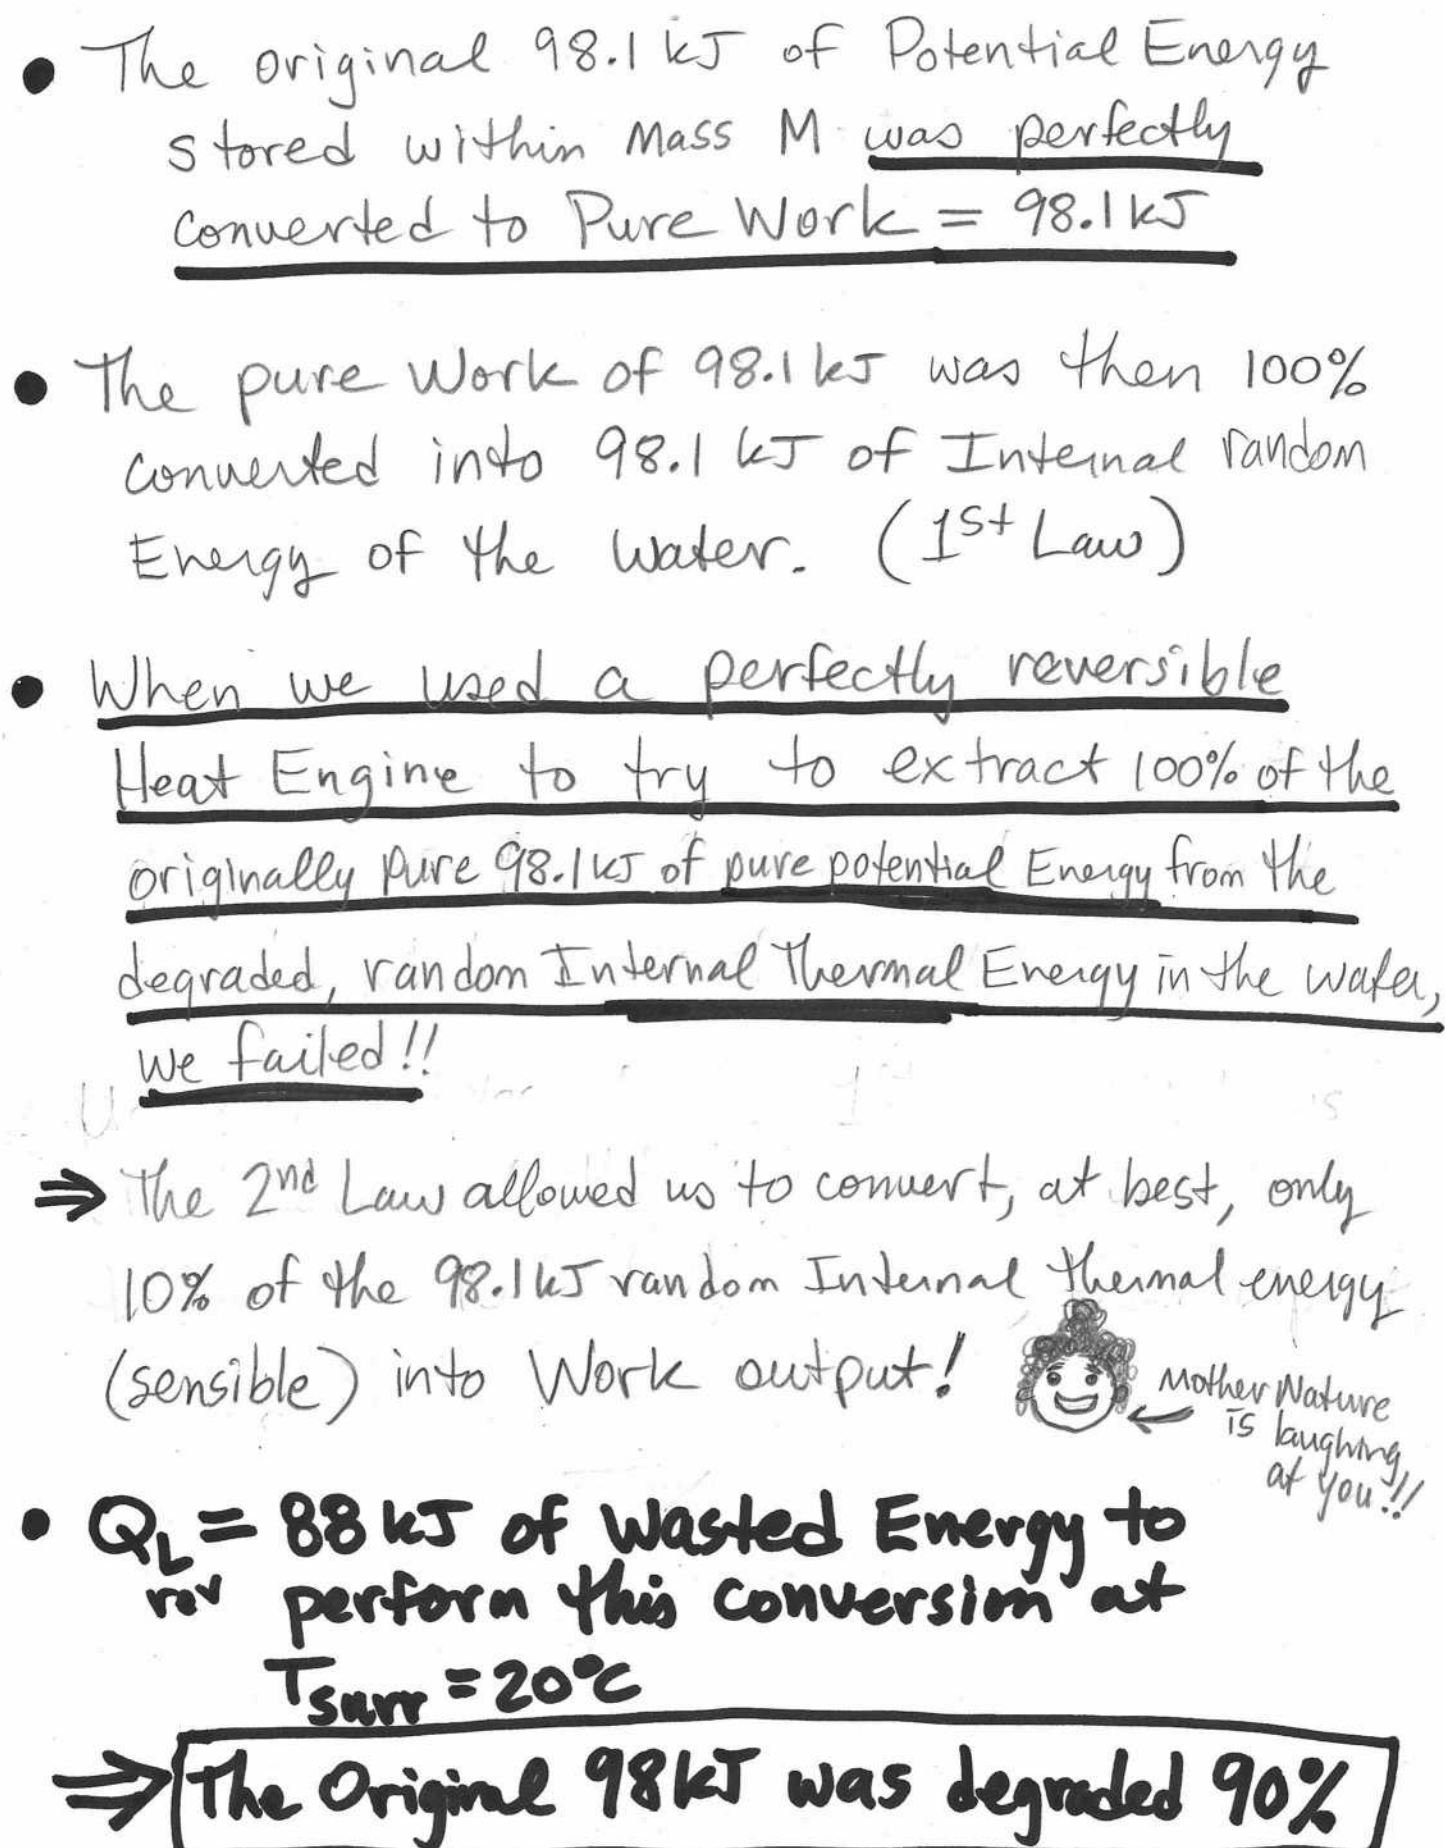 • The original 98.1 kJ of Potential Energy
stored within Mass M was perfectly
converted to Pure Work = 98.1 kJ
• The pure Work of 98.1 kJ was then 100%
converted into 98.1 kJ of Internal random
Energy of the Water. (1st Law)
• When we used a perfectly reversible
Heat Engine to try to extract 100% of the
originally pure 98.1 kJ of pure potential Energy from the
degraded, random Internal Thermal Energy in the water,
we failed!!
⇒ The 2nd Law allowed us to convert, at best, only
10% of the 98.1 kJ random Internal thermal energy
(sensible) into Work output!
Mother Nature
is laughing
at you!!
• QL = 88 kJ of Wasted Energy to
rev perform this conversion at
Tsurr = 20°C
⇒ The Original 98 kJ was degraded 90%